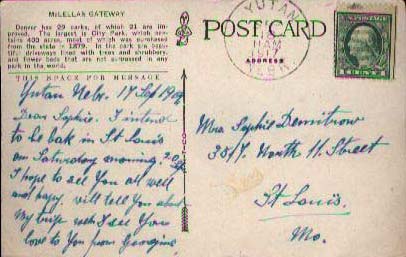 McLELLAN GATEWAY
Denver has 29 parks, of which 21 are im-
proved. The largest is City Park, which con-
tains 400 acres, most of which was purchased
from the state in 1879. In the park are beau-
tiful driveways lined with trees and shrubbery,
and flower beds that are not surpassed in any
park in the world.
THIS SPACE FOR MESSAGE
POST CARD
YUTAN
NEBR.
ADDRESS
Yutan Nebr. 17 Sep
Dear Sophie. I intend
to be bak in St Louis
on Saturday morning
I hope to see You all well
and happy. will tell You about
My trip when I see You
love to You from Georgina
Mrs Sophie Demitrow
3517 North 11. Street
St. Louis.
Mo.